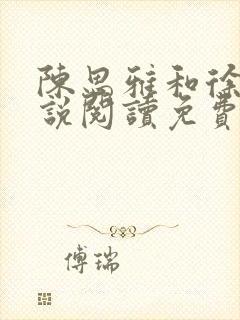 陳思雅和徐
說閱讀免費
傅瑞